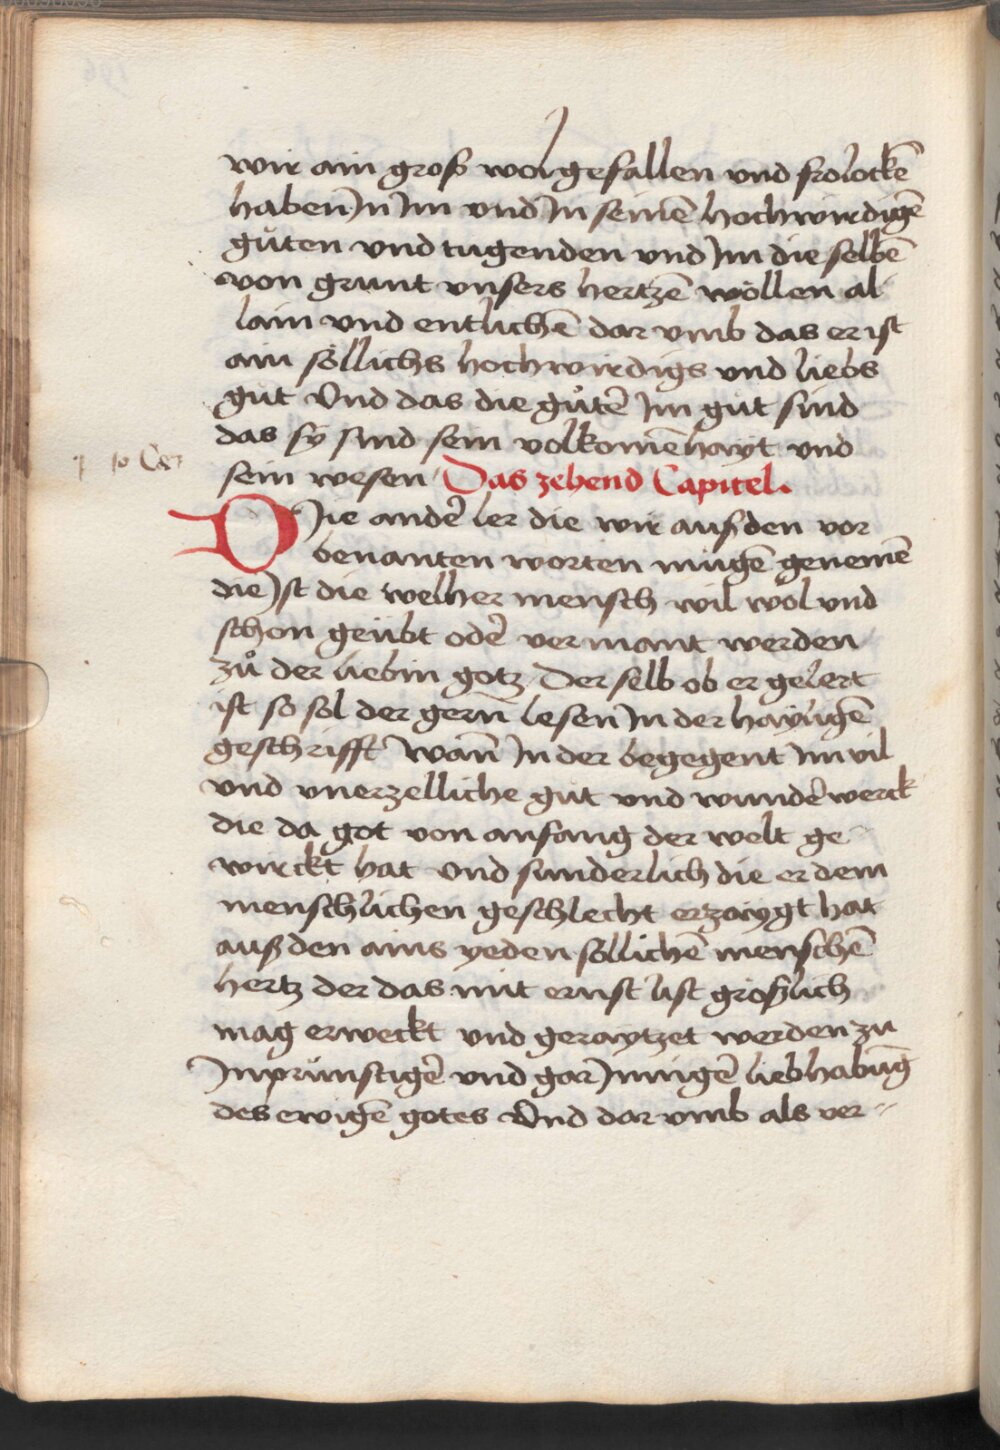 wir ain groß wolgefallen vnd frolockē
haben Jn Jm vnd Jn seinē hochwirdigē
gůten vnd tugenden vnd Jm die selbē
von grunt vnsers hertzē wöllen al
lain vnd entlichē dar vmb das er ist
ain söllichs hochwirdigs vnd liebs
gůt Vnd das die gůtē Jm gůt sind
das sÿ sind sein volkomēhayt vnd
sein wesen Das zehend Capitel.
DJie andeꝰ ler die wir auß den vor
benanten worten mügē genemē
die Jst die welher mensch wil wol vnd
schon geübt odeꝰ vermant werden
zů der liebin gotz Der selb ob er gelert
ist so sol der gern̄ lesen Jn der hayligē
geschrifft Wan̄ Jn der begegent Jm vil
vnd vnerzelliche gůt vnd wundeꝰwerck
die da got von anfang der welt ge
wirckt hat vnd sunderlich die er dem
menschlichen geschlecht erzaygt hat
auß den ains yeden söllichē menschē
hertz der das mit ernst list größlich
mag erweckt vnd geraytzet werden zu
Jnprünstigeꝰ vnd gar Jnnigeꝰ liebhabūg
des ewigē gotes Vnd dar vmb als ver